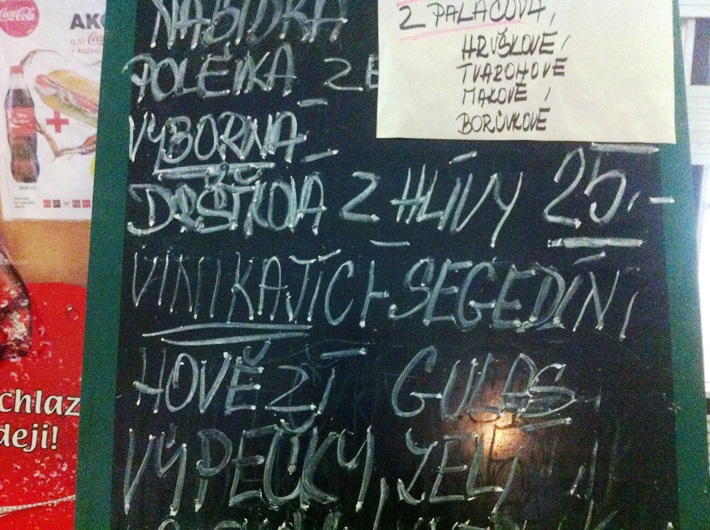 Coca-Cola
AK
0,5l
NABÍDKA
POLÉVKA ZE
VÝBORNÁ
DRŠŤKOVÁ Z HLÍVY 25,-
VYNIKAJÍCÍ SEGEDÍN,
HOVĚZÍ GULÁŠ
VÝPEČKY, ZELÍ
2 PALAČOVÁ,
HRUŠKOVÉ,
TVAROHOVÉ
MAKOVÉ,
BORŮVKOVÉ
chlaz
deji!